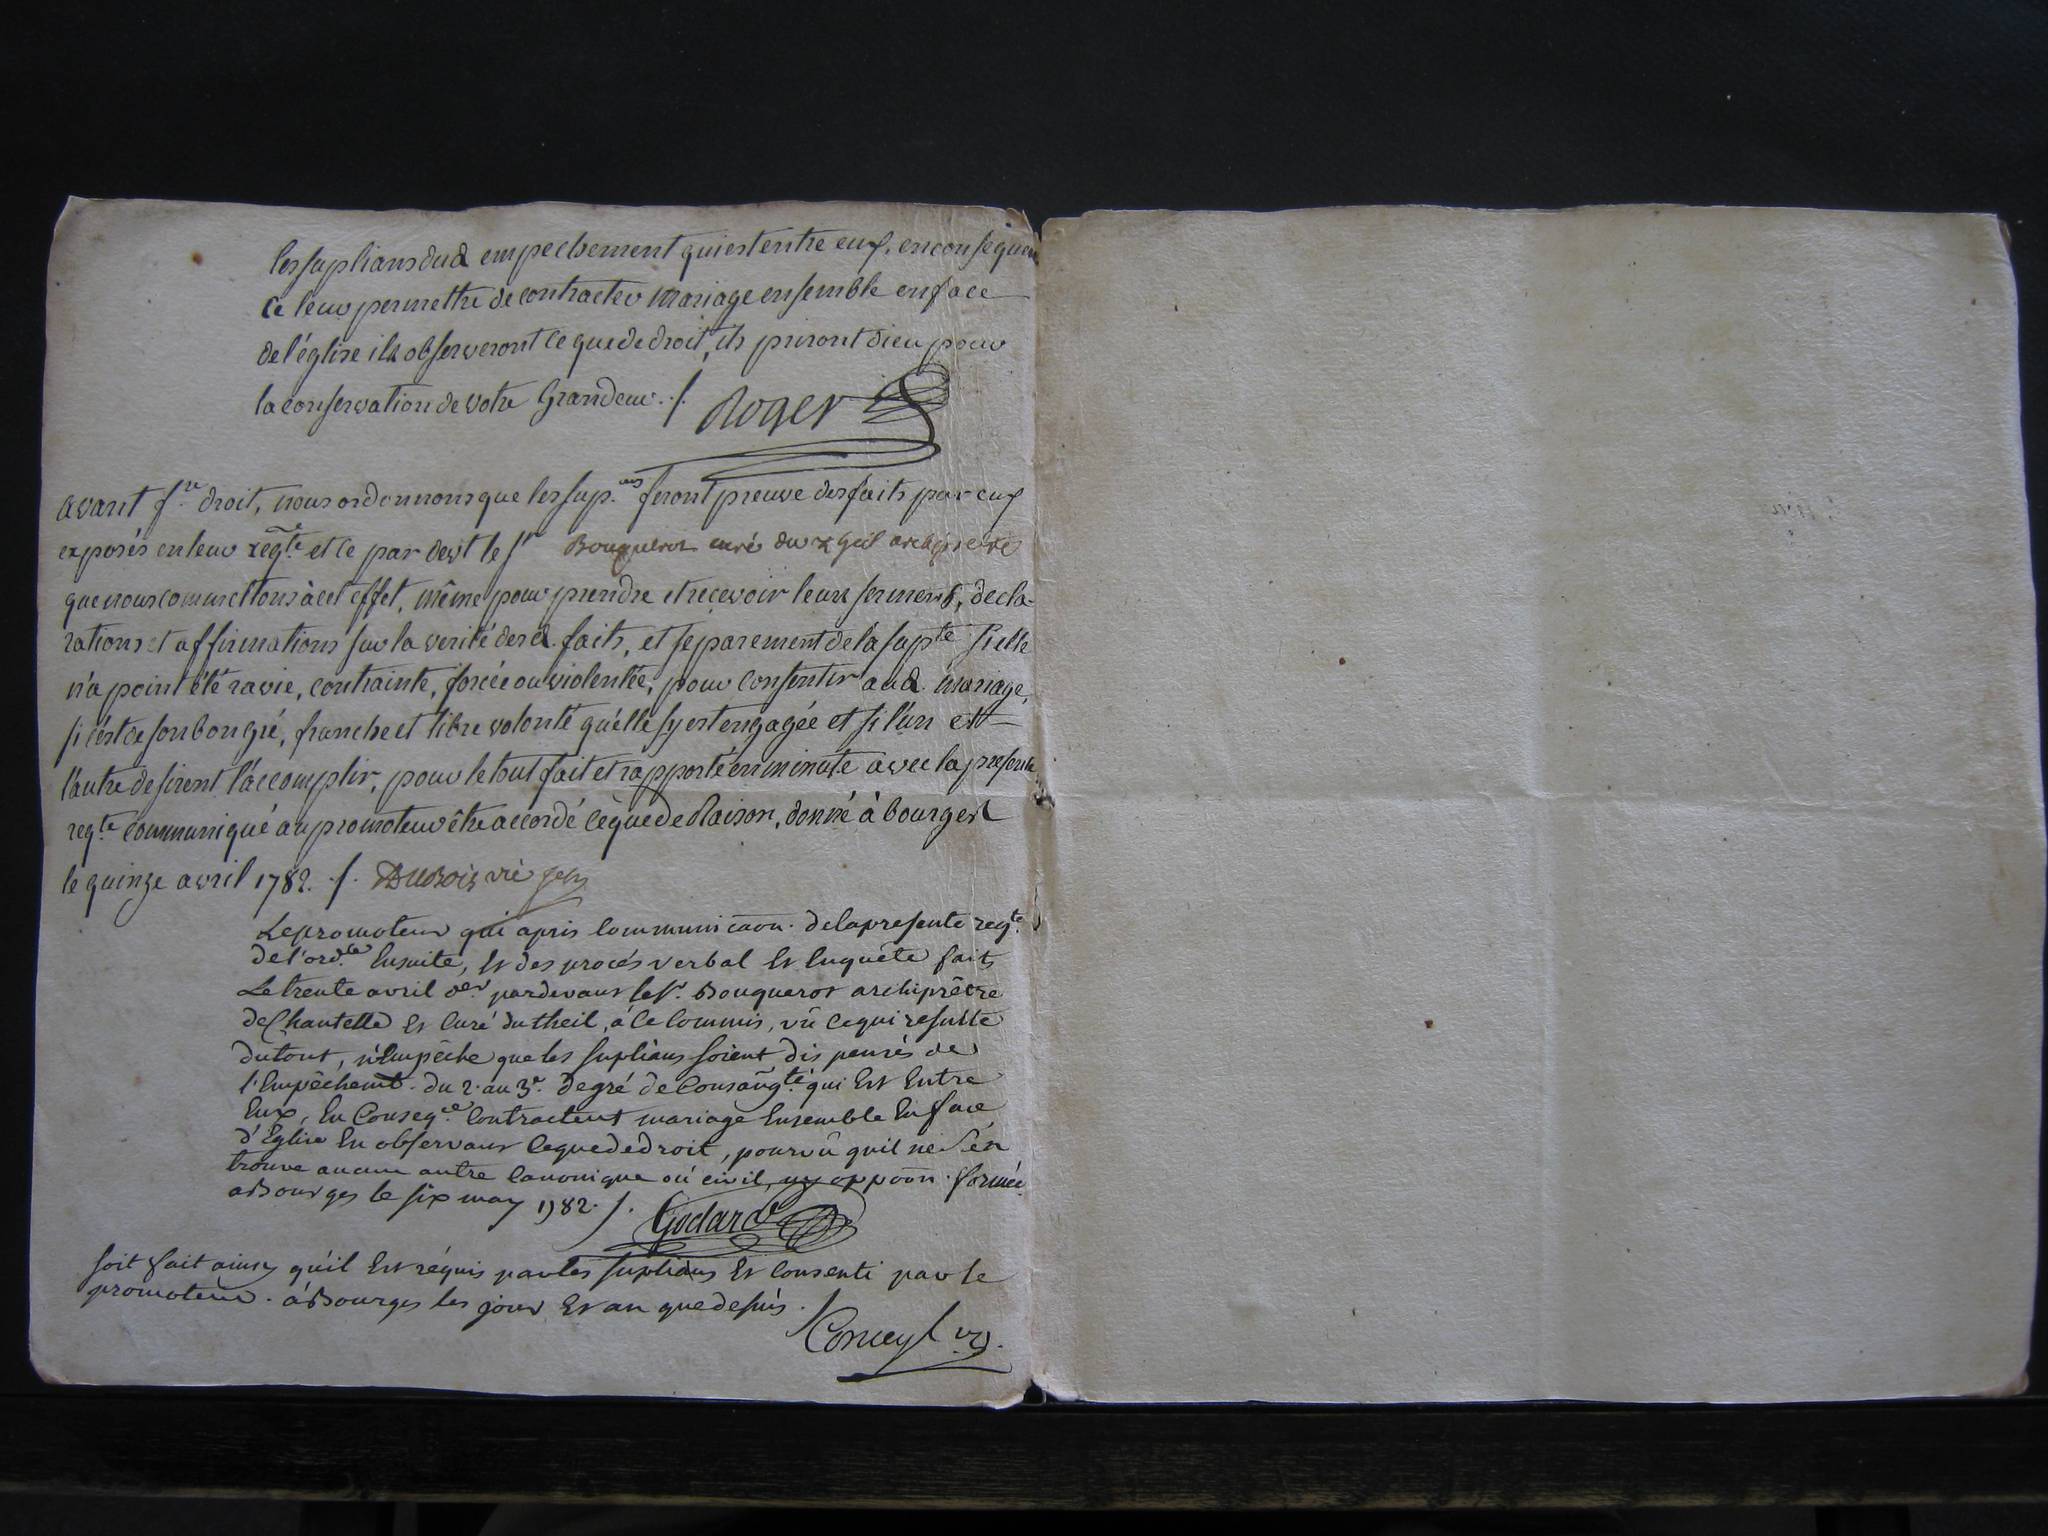 les suplians dud empechement qui est entre eux, en consequen
ce leur permettre de contracter mariage ensemble en face
de l'église ils observeront ce que de droit, ils priront dieu pour
la conservation de votre Grandeur ./. Roger
avant f.re droit, nous ordonnons que les sup.ans feront preuve des faits par eux
exposés en leur reqte et ce par devt le sr Bouquerot curé du theil archiprêtre
que nous commettons à cet effet, même pour prendre et recevoir leurs serments, decla-
rations et affirmations sur la verité desd. faits, et separement de la supte si elle
n'a point été ravie, contrainte, forcée ou violentée, pour consentir aud. mariage,
si c'est de son bon gré, franche et libre volonté qu'elle sy est engagée et si l'un et
l'autre desirent l'accomplir, pour le tout fait et rapporté en minute avec la presente
reqte communiqué au promoteur être accordé ce que de Raison, donné à bourges
le quinze avril 1782. ./. Dubois vic gen
Le promoteur qui apris communicaon. de la presente reqte
de l'ordce Ensuite, Et des procés verbal Et Enquête faits
Le trente avril der pardevant le Sr. Bouquerot archiprêtre
de Chantelle Et Curé du theil, à ce commis, vû ce qui resulte
du tout, n'Empêche que les suplians soient dispensés de
l'Empêchemt. du 2. au 3e. degré de Consangté qui Est Entre
Eux, En Conseqce Contractent mariage Ensemble En face
d'Eglise En observant ce que de droit, pourvû quil ne s'en
trouve aucun autre canonique ou civil, ny oppoōn. formée
a Bourges le six may 1782. ./. Godard
soit fait ainsy qu'il Est réquis par les suplians Et consenti par le
promoteur. à Bourges les jour Et an que dessus. ./.